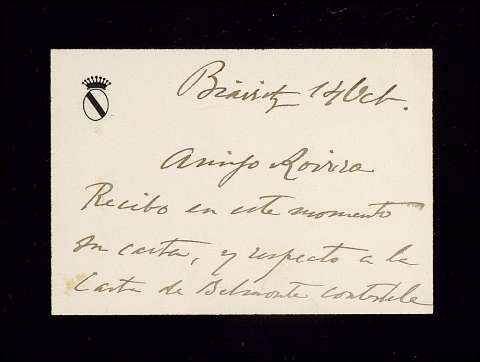 Biarritz 14 Oct.
Amigo Rovira
Recibo en este momento
su carta, y respecto a la
Carta de Belmonte contestele